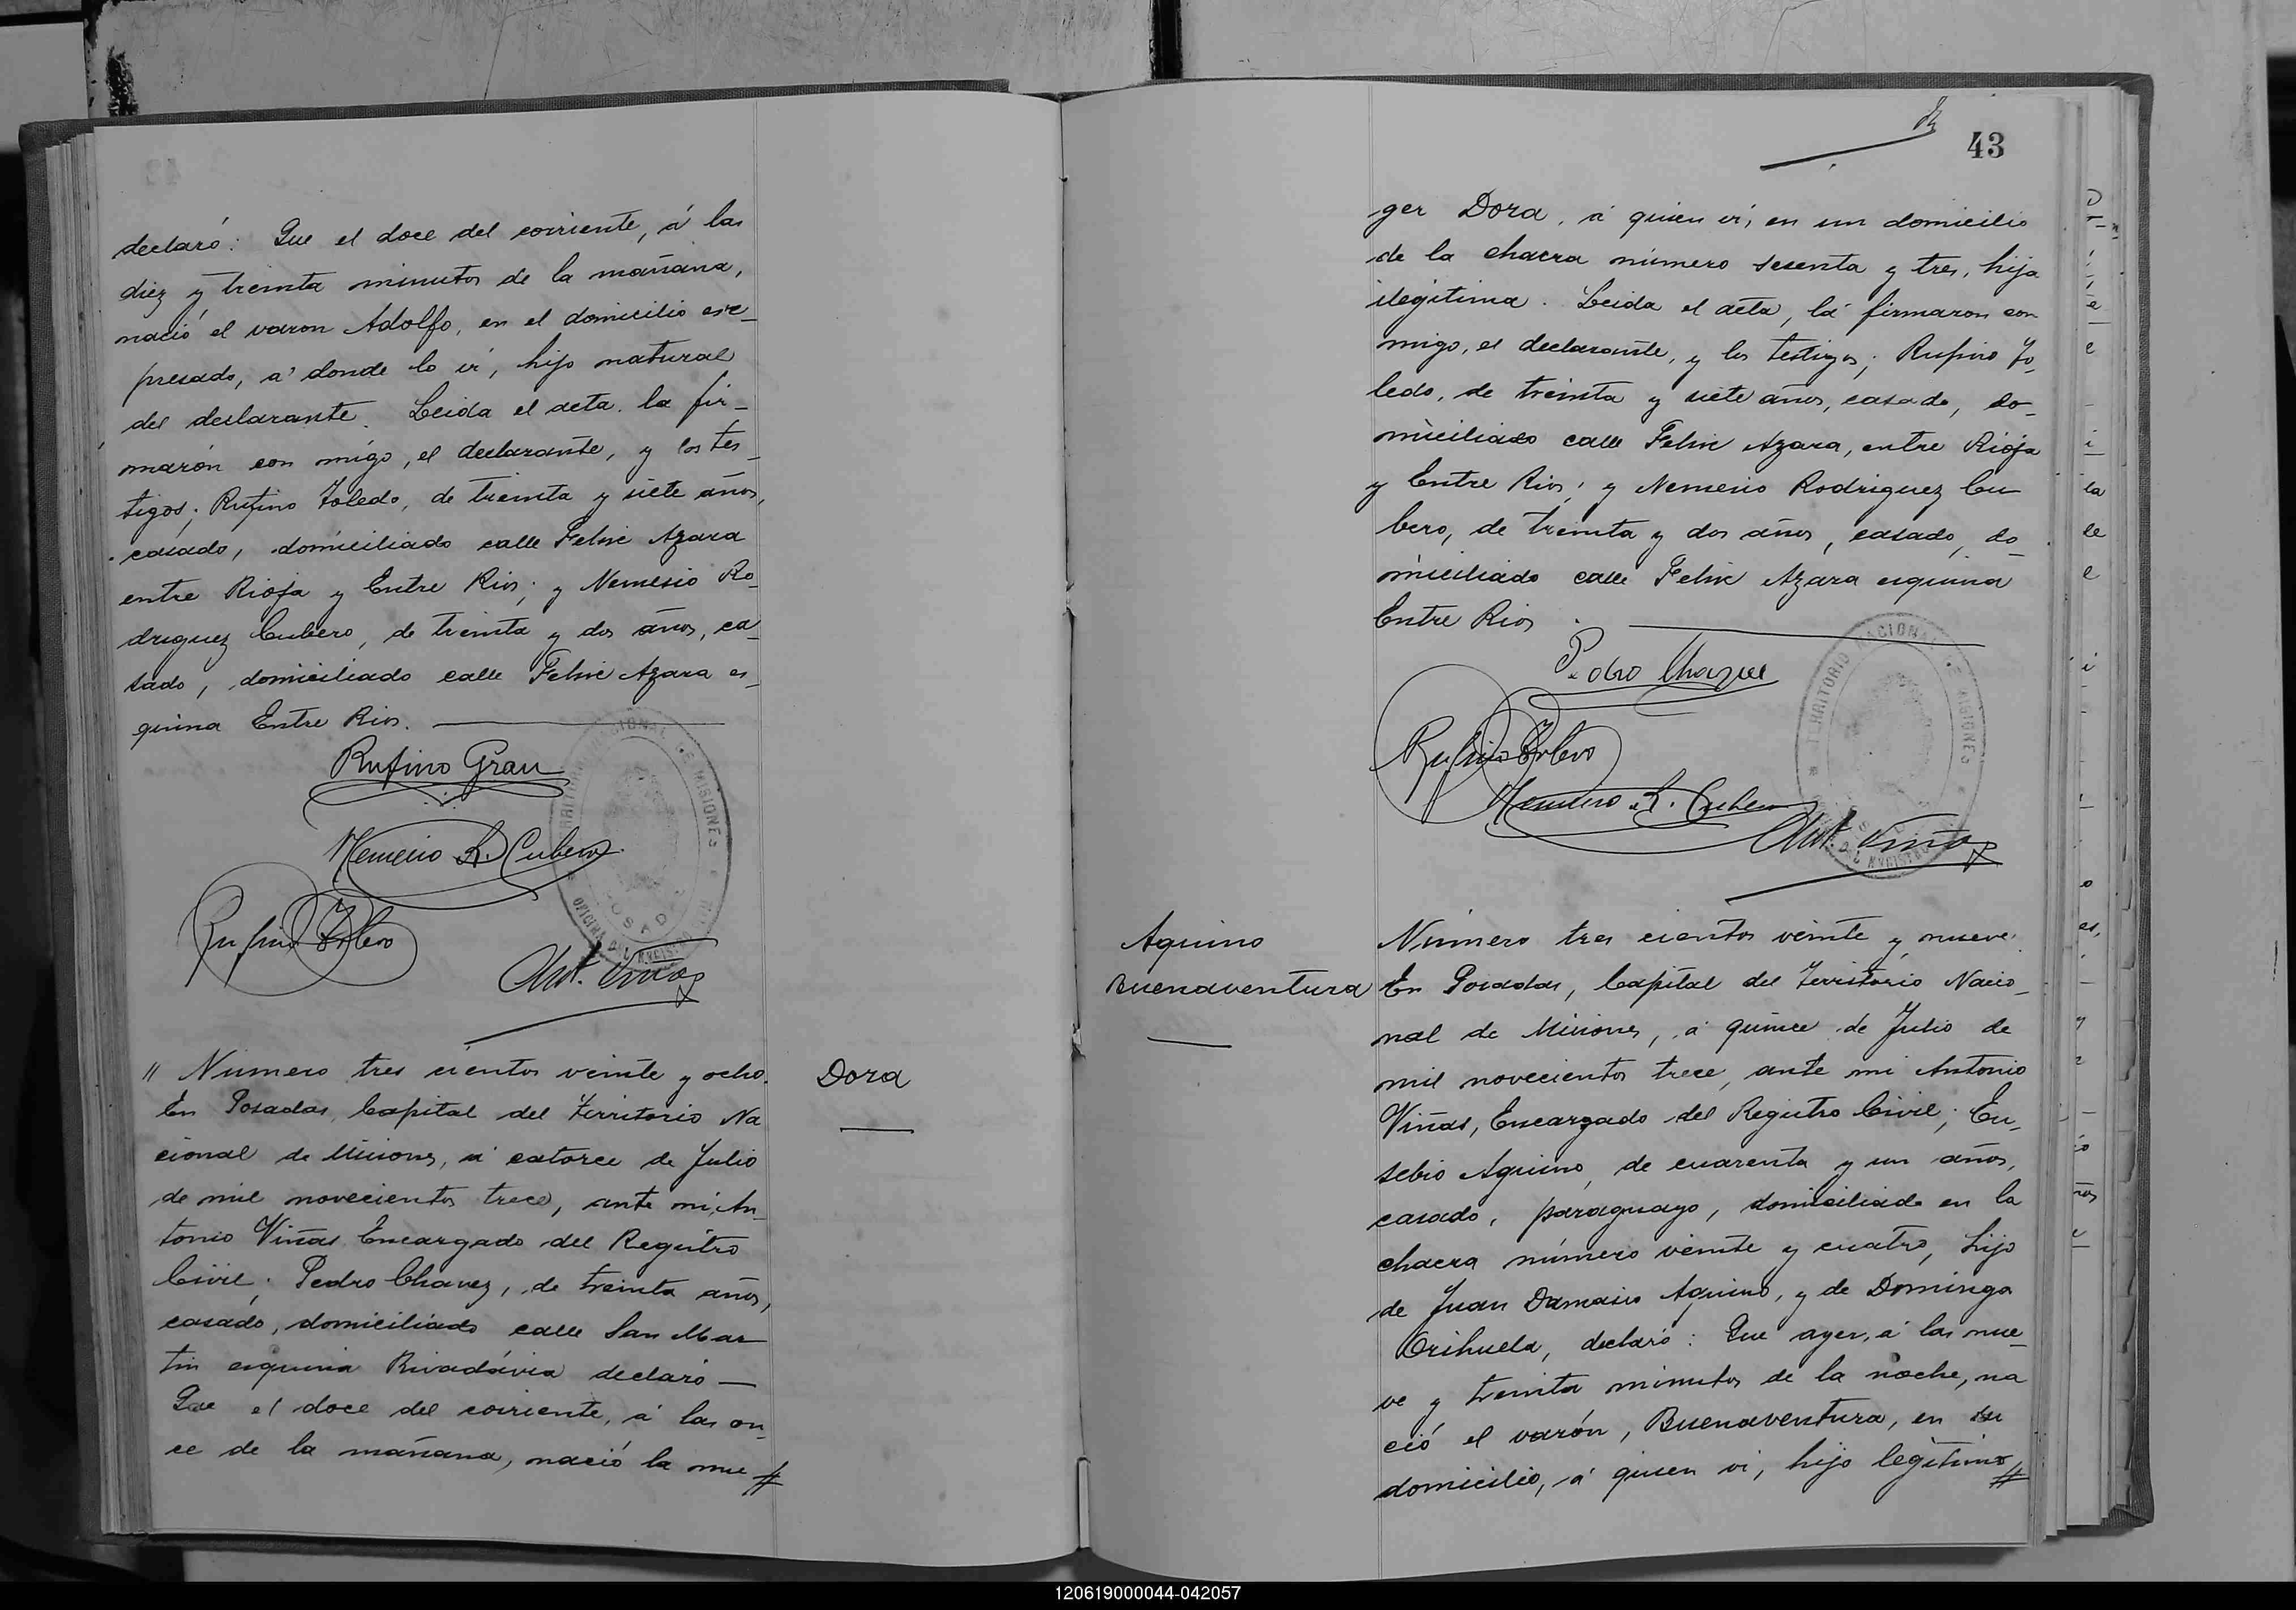 declaró: Que el doce del corriente, á las
diez y treinta minutos de la mañana,
nació el varon Adolfo, en el domicilio ex-
presado, a' donde lo vi, hijo natural
del declarante. Leida el acta. la fir-
marón con migo, el declarante, y los tes-
tigos; Rufino Toledo, de treinta y siete años,
casado, domiciliado calle Felix Azara
entre Rioja y Entre Rios; y Nemesio Ro-
driguez Cubero, de treinta y dos años, ca-
sado, domiciliado calle Felix Azara es-
quina Entre Rios.
Rufino Grau
Nemesio R. Cubero
Rufino Toledo
Ant. Viñas
" Número tres cientos veinte y ocho.
En Posadas, Capital del Territorio Na
cional de Misiones, á catorce de Julio
de mil novecientos trece, ante mi, An-
tonio Viñas Encargado del Registro
Civil; Pedro Chavez, de treinta años,
casado, domiciliado calle San Mar
tin esquina Rivadávia declaró—
Que el doce del corriente, á las on-
ce de la mañana, nació la mu #
Dora
43
ger Dora, á quien vi, en un domicilio
de la chacra número sesenta y tres, hija
ilegitima. Leida el acta, la firmaron con
migo, el declarante, y los testigos; Rufino To-
ledo, de treinta y siete años, casado, do-
miciliado calle Felix Azara, entre Rioja
y Entre Rios; y Nemesio Rodriguez Cu
bero, de treinta y dos años, casado, do-
miciliado calle Felix Azara esquina
Entre Rios.
Pedro Chavez
Rufino Toledo
Nemesio R. Cubero
Ant. Viñas
TERRITORIO NACIONAL DE MISIONES
Aquino
Buenaventura
Número tres cientos veinte y nueve.
En Posadas, Capital del Territorio Nacio-
nal de Misiones, á quince de Julio de
mil novecientos trece, ante mi Antonio
Viñas, Encargado del Registro Civil; Eu-
sebio Aquino, de cuarenta y un años,
casado, paraguayo, domiciliado en la
chacra número veinte y cuatro, hijo
de Juan Damasio Aquino, y de Dominga
Orihuela, declaró: Que ayer, á las nue-
ve y treinta minutos de la noche, na
ció el varón, Buenaventura, en su
domicilio, á quien vi, hijo legítimo #
120619000044-042057